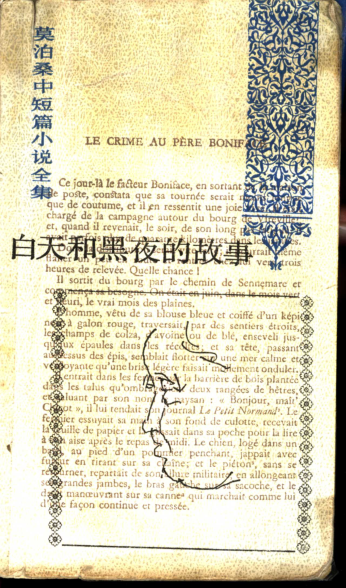 莫泊桑中短篇小说全集
LE CRIME AU PÈRE BONIF
白天和黑夜的故事
Ce jour-là le facteur Boniface, en sortant
de poste, constata que sa tournée serait
que de coutume, et il en ressentit une joie
chargé de la campagne autour du bourg de
et, quand il revenait, le soir, de son long
heures de relevée. Quelle chance !
Il sortit du bourg par le chemin de Sennemare et
commença sa besogne. On était en juin, dans le mois vert
et fleuri, le vrai mois des plaines.
homme, vêtu de sa blouse bleue et coiffé d'un képi
à galon rouge, traversait par des sentiers étroits,
champs de colza, d'avoine ou de blé, enseveli jus-
aux épaules dans les récoltes; et sa tête, passant
au-dessus des épis, semblait flotter une mer calme et
verdoyante qu'une brise légère faisait mollement onduler.
entrait dans les fermes la barrière de bois plantée
dans les talus qu'ombr deux rangées de hêtres,
et saluant par son nom paysan : « Bonjour, maît'
», il lui tendait son journal Le Petit Normand. Le
fermier essuyait sa main son fond de culotte, recevait
la feuille de papier et la glissait dans sa poche pour la lire
à son aise après le repas midi. Le chien, logé dans un
au pied d'un pommier penchant, jappait avec
fureur en tirant sur sa chaîne; et le piéton, sans se
retourner, repartait de son allure militaire, en allongeant
ses grandes jambes, le bras gauche sur sa sacoche, et le
manœuvrant sur sa canne qui marchait comme lui
d'une façon continue et pressée.